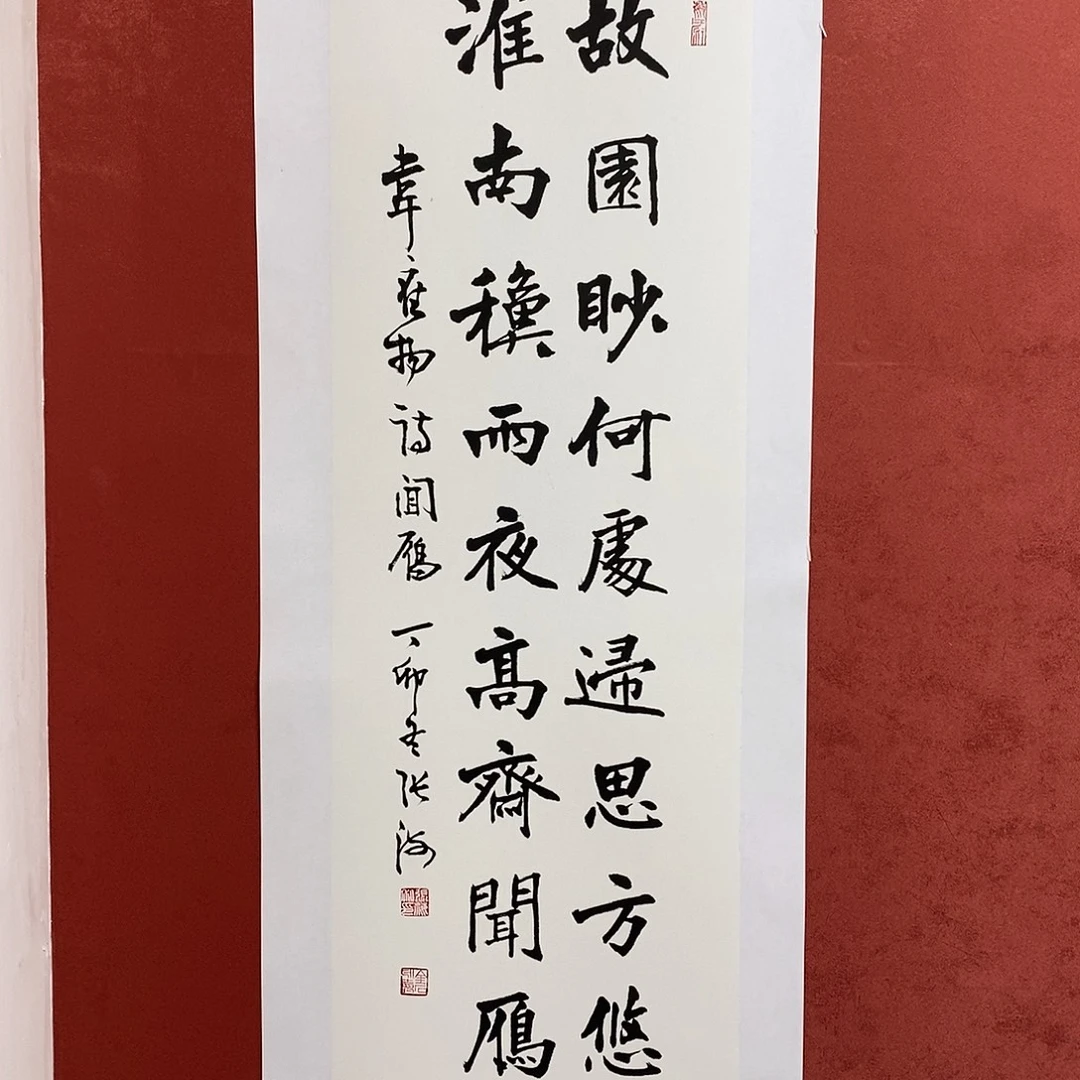 故園眇何處歸思方悠
淮南穐雨夜高齋聞鴈
韋應物詩聞鴈 丁卯冬張海